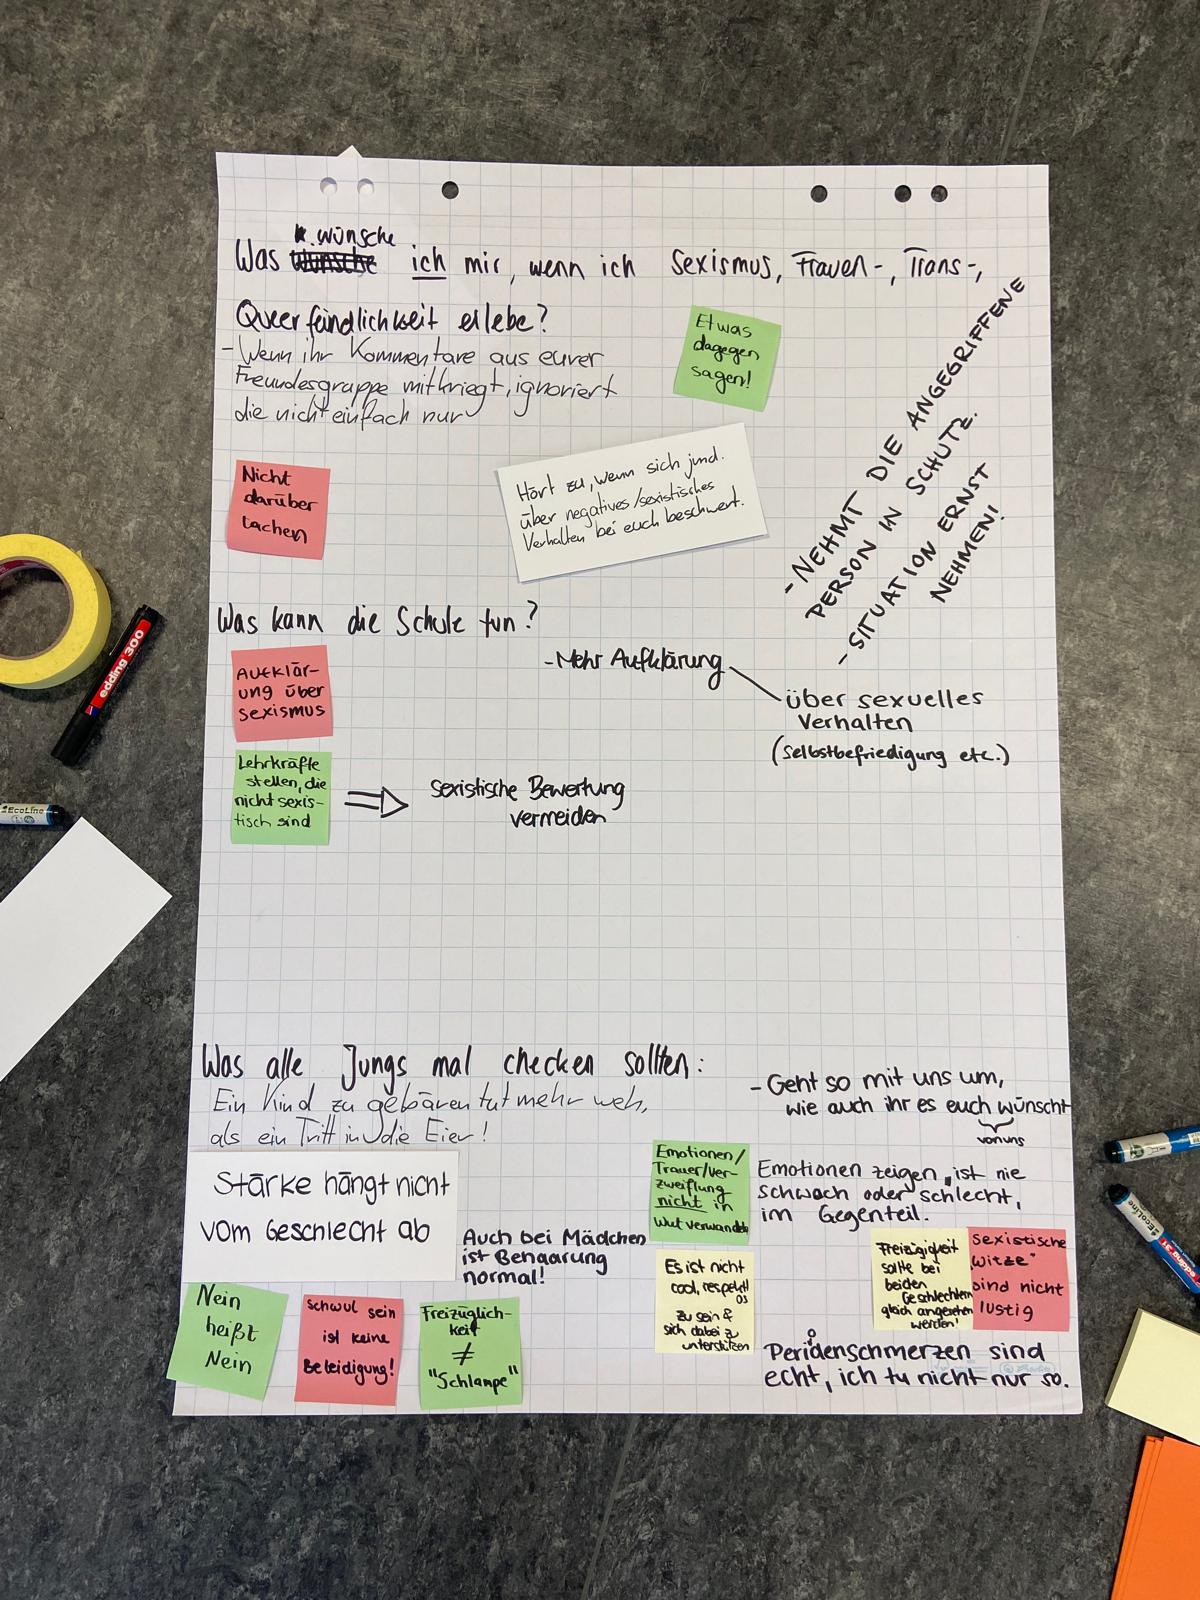 Was wünsche ich mir, wenn ich Sexismus, Frauen-, Trans-,
Queerfeindlichkeit erlebe?
- Wenn ihr Kommentare aus eurer
Freundesgruppe mitkriegt, ignoriert
die nicht einfach nur
Etwas
dagegen
sagen!
- NEHMT DIE ANGEGRIFFENE
PERSON IN SCHUTZ.
- SITUATION ERNST
NEHMEN!
Nicht
darüber
lachen
Hört zu, wenn sich jmd.
über negatives/sexistisches
Verhalten bei euch beschwert.
Was kann die Schule tun?
Aufklär-
ung über
sexismus
- Mehr Aufklärung
über sexuelles
Verhalten
(Selbstbefriedigung etc.)
Lehrkräfte
stellen, die
nicht sexis-
tisch sind
sexistische Bewertung
vermeiden
Was alle Jungs mal checken sollten:
Ein Kind zu gebären tut mehr weh,
als ein Tritt in die Eier!
- Geht so mit uns um,
wie auch ihr es euch wünscht
von uns
Stärke hängt nicht
vom Geschlecht ab
Auch bei Mädchen
ist Behaarung
normal!
Emotionen/
Trauer/Ver-
zweiflung
nicht in
Wut verwandeln
Emotionen zeigen, ist nie
schwach oder schlecht,
im Gegenteil.
Nein
heißt
Nein
Schwul sein
ist keine
Beleidigung!
Freizüglich-
keit
≠
"Schlampe"
Es ist nicht
cool, respektl
os
zu sein &
sich dabei z
unterstützen
Freizügigkeit
sollte bei
beiden
Geschlechtern
gleich angesehen
werden!
Sexistische
Witze"
sind nicht
lustig
Peridenschmerzen sind
o
echt, ich tu nicht nur so.
edding 300
EcoLine
EcoLine
edding 31